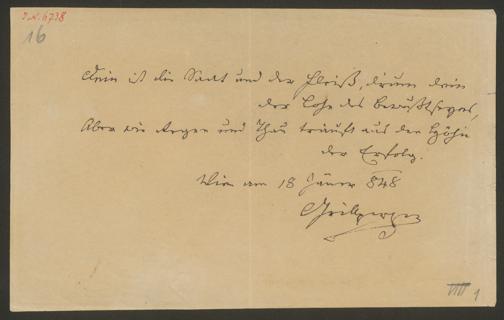 J.N. 6738
16
Dein ist die Saat und der Fleiß, drum dein
der Lohn des Bewußtseyns,
Aber wie Regen und Thau träuft aus den Höhn
der Erfolg.
Wien am 18 Jäner 848
Grillparzer
VIII 1